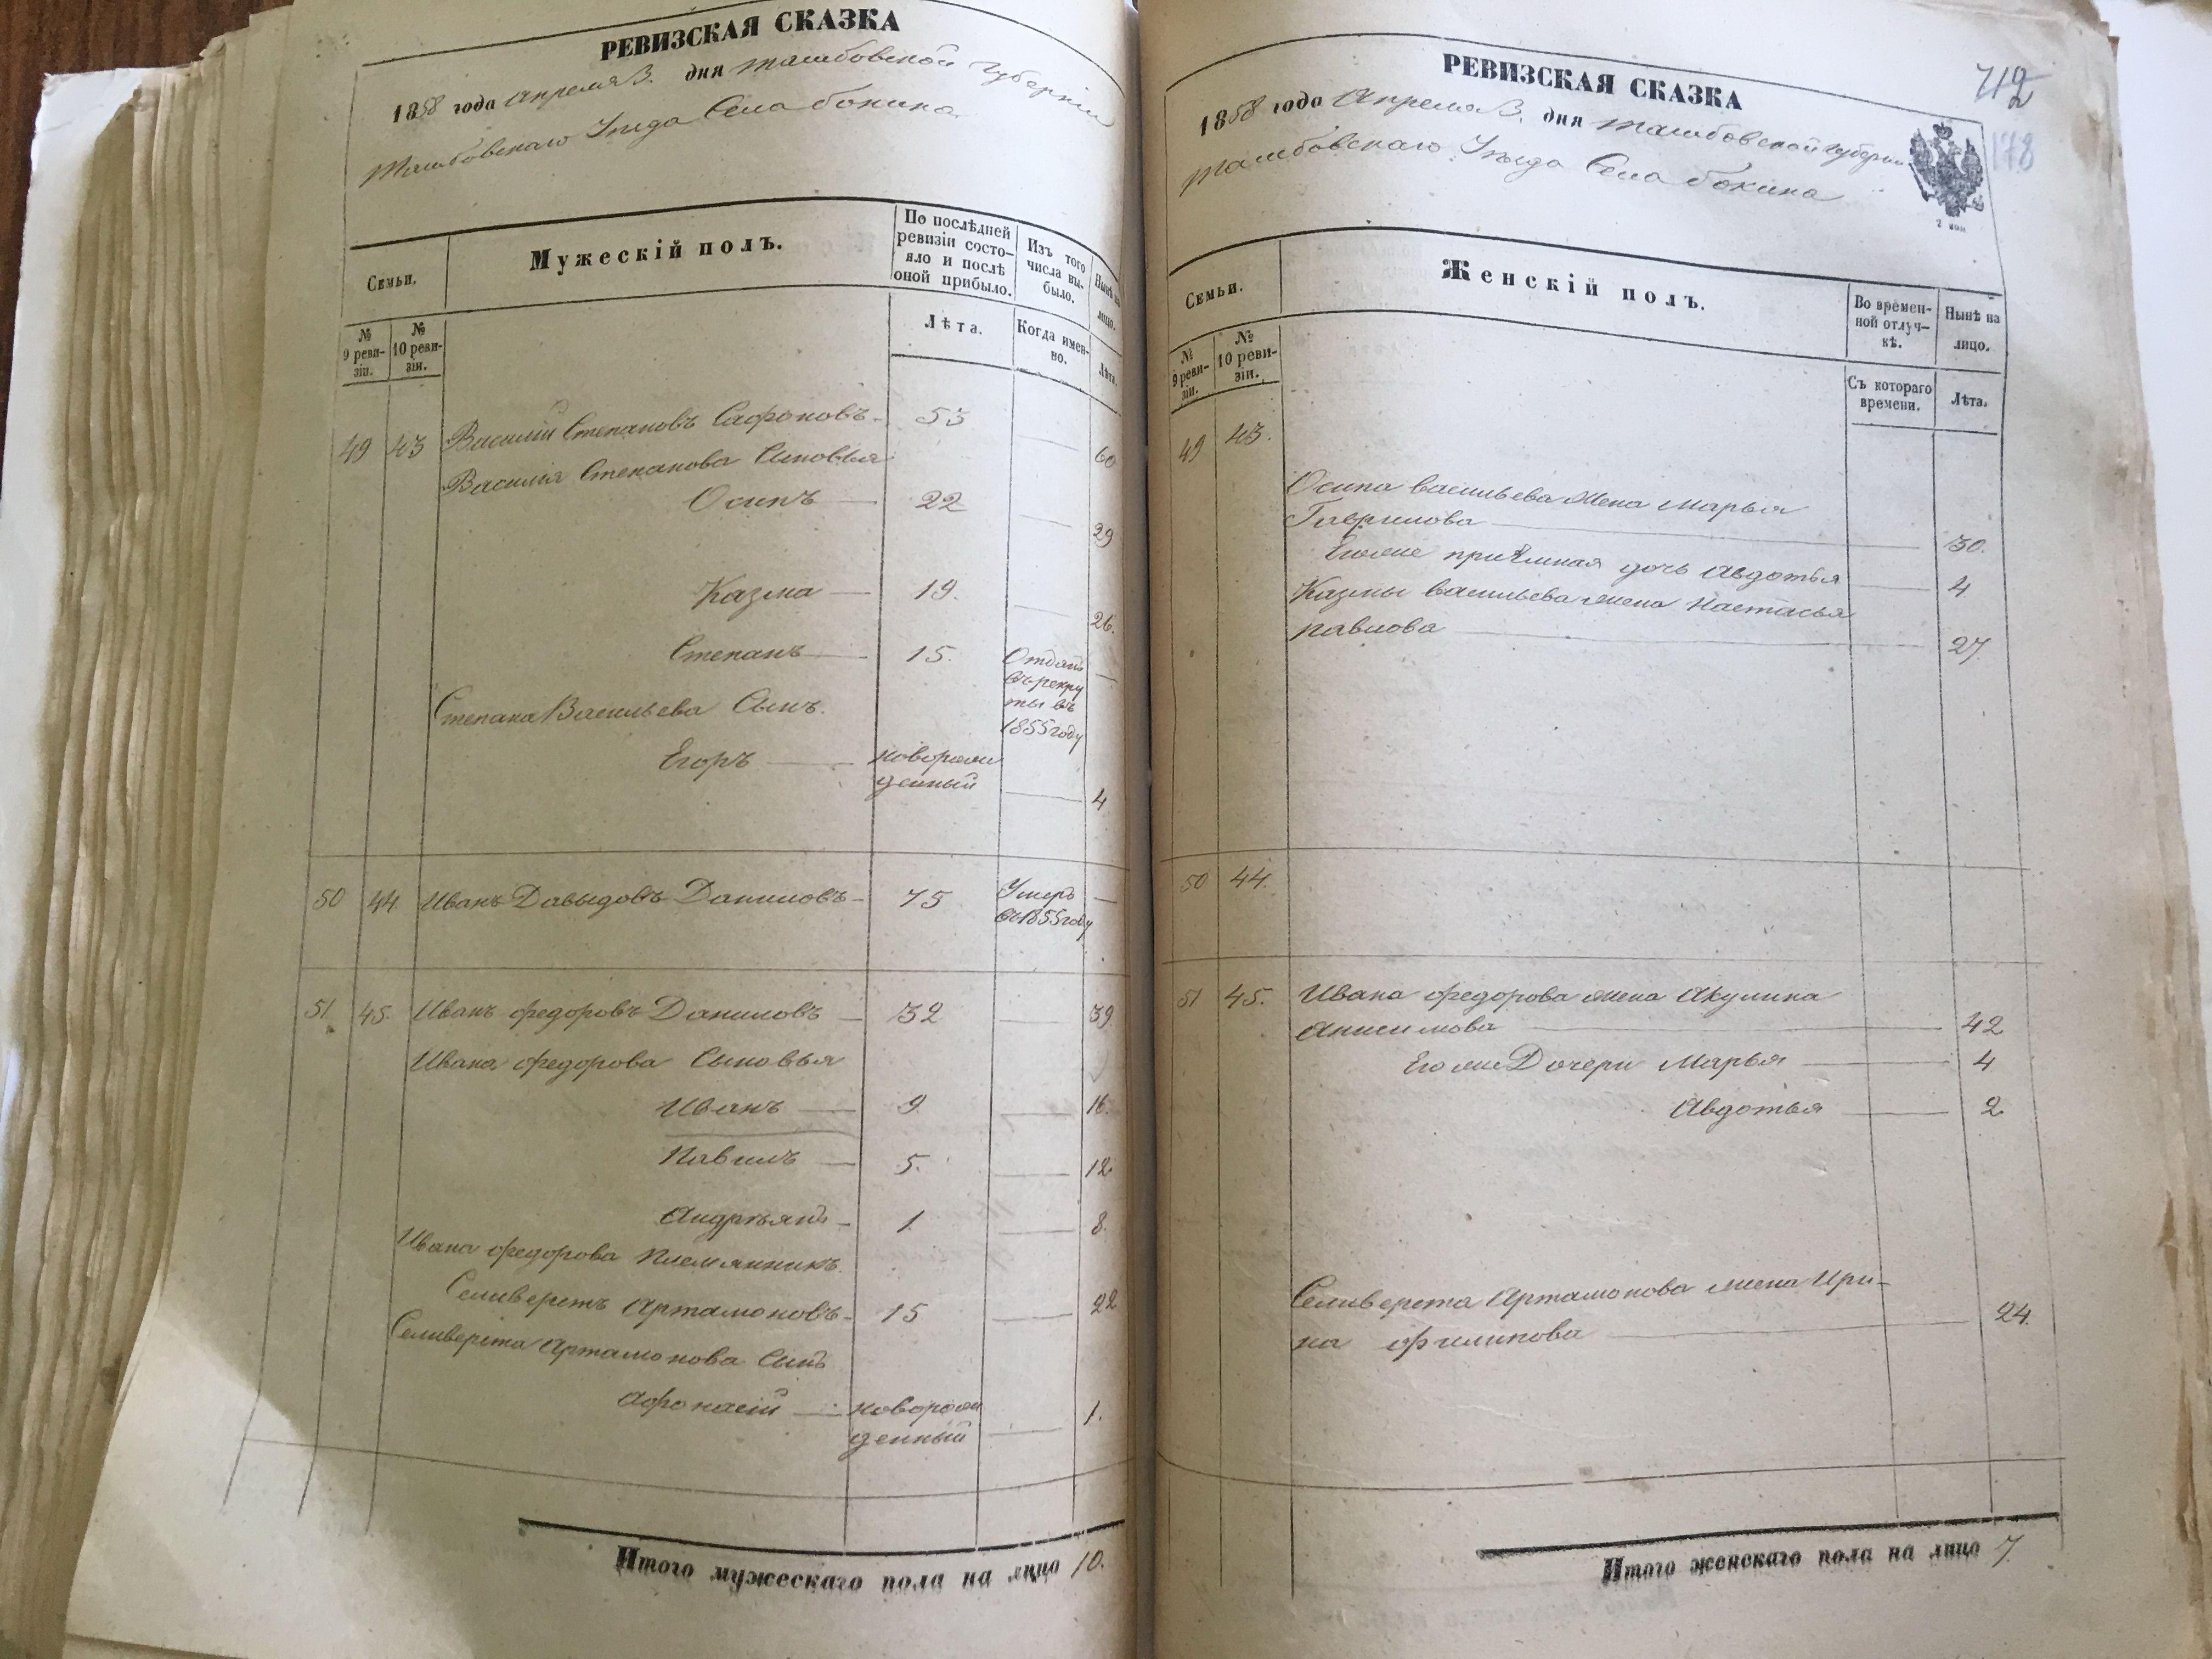 РЕВИЗСКАЯ СКАЗКА
1858 года Апреля 3. дня Тамбовской Губерніи
Тамбовскаго Уѣзда Села Бокина.
Семьи.
Мужескій полъ.
По послѣдней ревизіи состояло и послѣ оной прибыло.
Изъ того числа выбыло.
Нынѣ на лицо.
№ 9 ревизіи.
№ 10 ревизіи.
Лѣта.
Когда именно.
Лѣта.
49 43 Василій Степановъ Сафроновъ 53 — 60
Василія Степанова Сыновья
Осипъ — 22 — 29
Казма — 19. — 26.
Степанъ — 15. Отданъ —
въ рекру
ты въ
1855 году
Степана Васильева Сынъ.
Егоръ — новорож
денный — 4
50 44. Иванъ Давыдовъ Даниловъ — 75 Умеръ —
въ 1855 году
51 45. Иванъ Федоровъ Даниловъ — 32 — 39
Ивана Федорова Сыновья
Иванъ — 9. — 16.
Павилъ — 5. — 12
Андреянъ — 1. — 8.
Ивана Федорова Племянникъ.
Селиверстъ Артамоновъ — 15 — 22
Селиверста Артамонова Сынъ
Афонасій — новорож
денный — 1.
Итого мужескаго пола на лицо 10.
712
178
РЕВИЗСКАЯ СКАЗКА
1858 года Апреля 3. дня Тамбовской Губерніи
Тамбовскаго Уѣзда Села Бокина
Семьи.
Женскій полъ.
Во временной отлучкѣ.
Нынѣ на лицо.
№ 9 ревизіи.
№ 10 ревизіи.
Съ котораго времени.
Лѣта.
49 43.
Осипа Васильева Жена Марья
Гаврилова — 30.
Его же приемная дочь Авдотья — 4
Казмы Васильева жена Настасья
Павлова — 27.
50 44.
51 45. Ивана Федорова жена Акулина
Анисимова — 42
Его же Дочери Марья — 4
Авдотья — 2
Селиверста Артамонова жена Ири-
на Филипова — 24.
Итого женскаго пола на лицо 7.